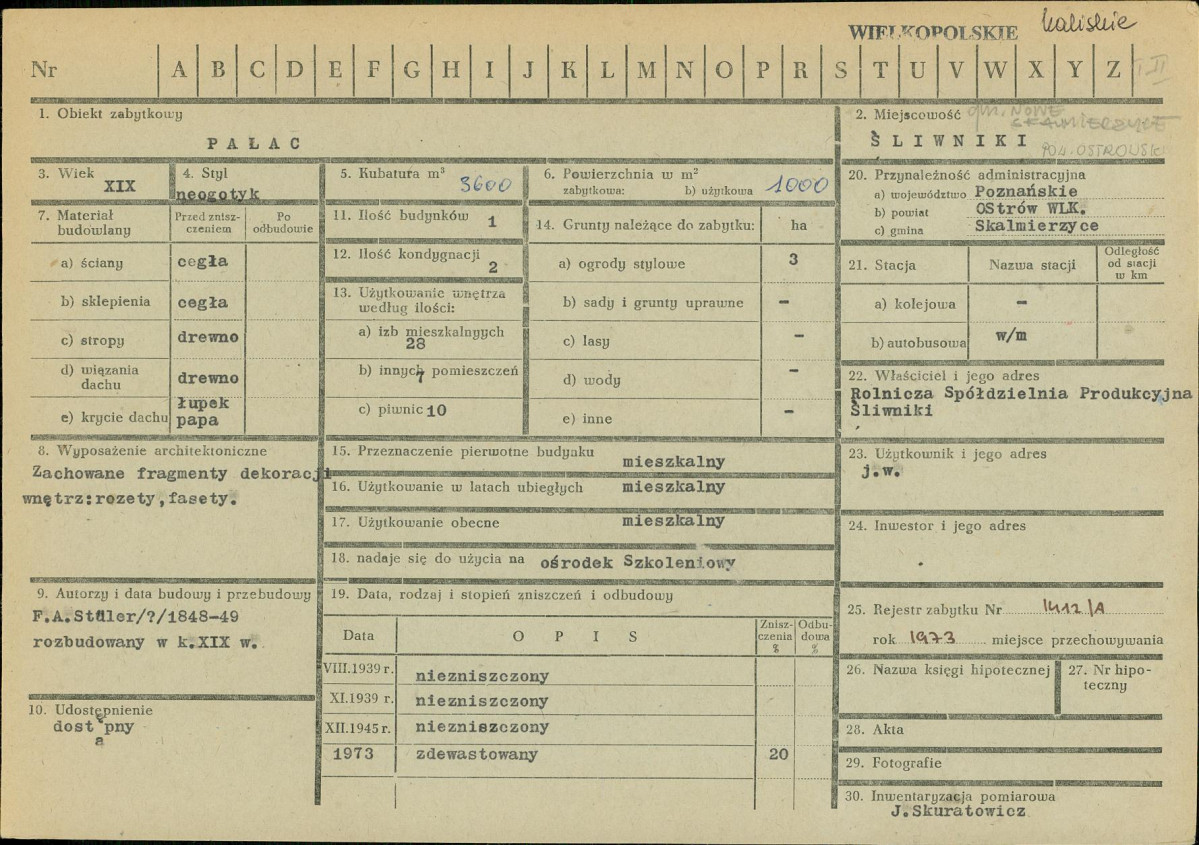 WIELKOPOLSKIE kaliskie
Nr A B C D E F G H I J K L M N O P R S T U V W X Y Z I-II
1. Obiekt zabytkowy
PAŁAC
2. Miejscowość gm. NOWE
SKALMIERZYCE
ŚLIWNIKI POW. OSTROWSKI
3. Wiek
XIX
4. Styl
neogotyk
5. Kubatura m³ 3600
6. Powierzchnia w m²
zabytkowa: b) użytkowa 1000
20. Przynależność administracyjna
a) województwo Poznańskie
b) powiat OStrów WLK.
c) gmina Skalmierzyce
7. Materiał
budowlany
Przed znisz-
czeniem
Po
odbudowie
a) ściany cegła
b) sklepienia cegła
c) stropy drewno
d) wiązania
dachu drewno
e) krycie dachu łupek
papa
11. Ilość budynków 1
12. Ilość kondygnacji
2
13. Użytkowanie wnętrza
według ilości:
a) izb mieszkalnych
28
b) innych pomieszczeń
7
c) piwnic 10
14. Grunty należące do zabytku: ha
a) ogrody stylowe 3
b) sady i grunty uprawne –
c) lasy –
d) wody –
e) inne –
21. Stacja Nazwa stacji Odległość
od stacji
w km
a) kolejowa –
b) autobusowa w/m
22. Właściciel i jego adres
Rolnicza Spółdzielnia Produkcyjna
Śliwniki
8. Wyposażenie architektoniczne
Zachowane fragmenty dekoracji
wnętrz:rozety,fasety.
15. Przeznaczenie pierwotne budynku mieszkalny
16. Użytkowanie w latach ubiegłych mieszkalny
17. Użytkowanie obecne mieszkalny
18. nadaje się do użycia na ośrodek Szkoleniowy
23. Użytkownik i jego adres
j.w.
24. Inwestor i jego adres
9. Autorzy i data budowy i przebudowy
F.A.Stüler/?/1848-49
rozbudowany w k.XIX w.
10. Udostępnienie
dostępny
a
19. Data, rodzaj i stopień zniszczeń i odbudowy
Data OPIS Znisz-
czenia
%
Odbu-
dowa
%
VIII.1939 r. niezniszczony
XI.1939 r. niezniszczony
XII.1945 r. niezniszczony
1973 zdewastowany 20
25. Rejestr zabytku Nr 1412/A
rok 1973 miejsce przechowywania
26. Nazwa księgi hipotecznej
27. Nr hipo-
teczny
28. Akta
29. Fotografie
30. Inwentaryzacja pomiarowa
J.Skuratowicz